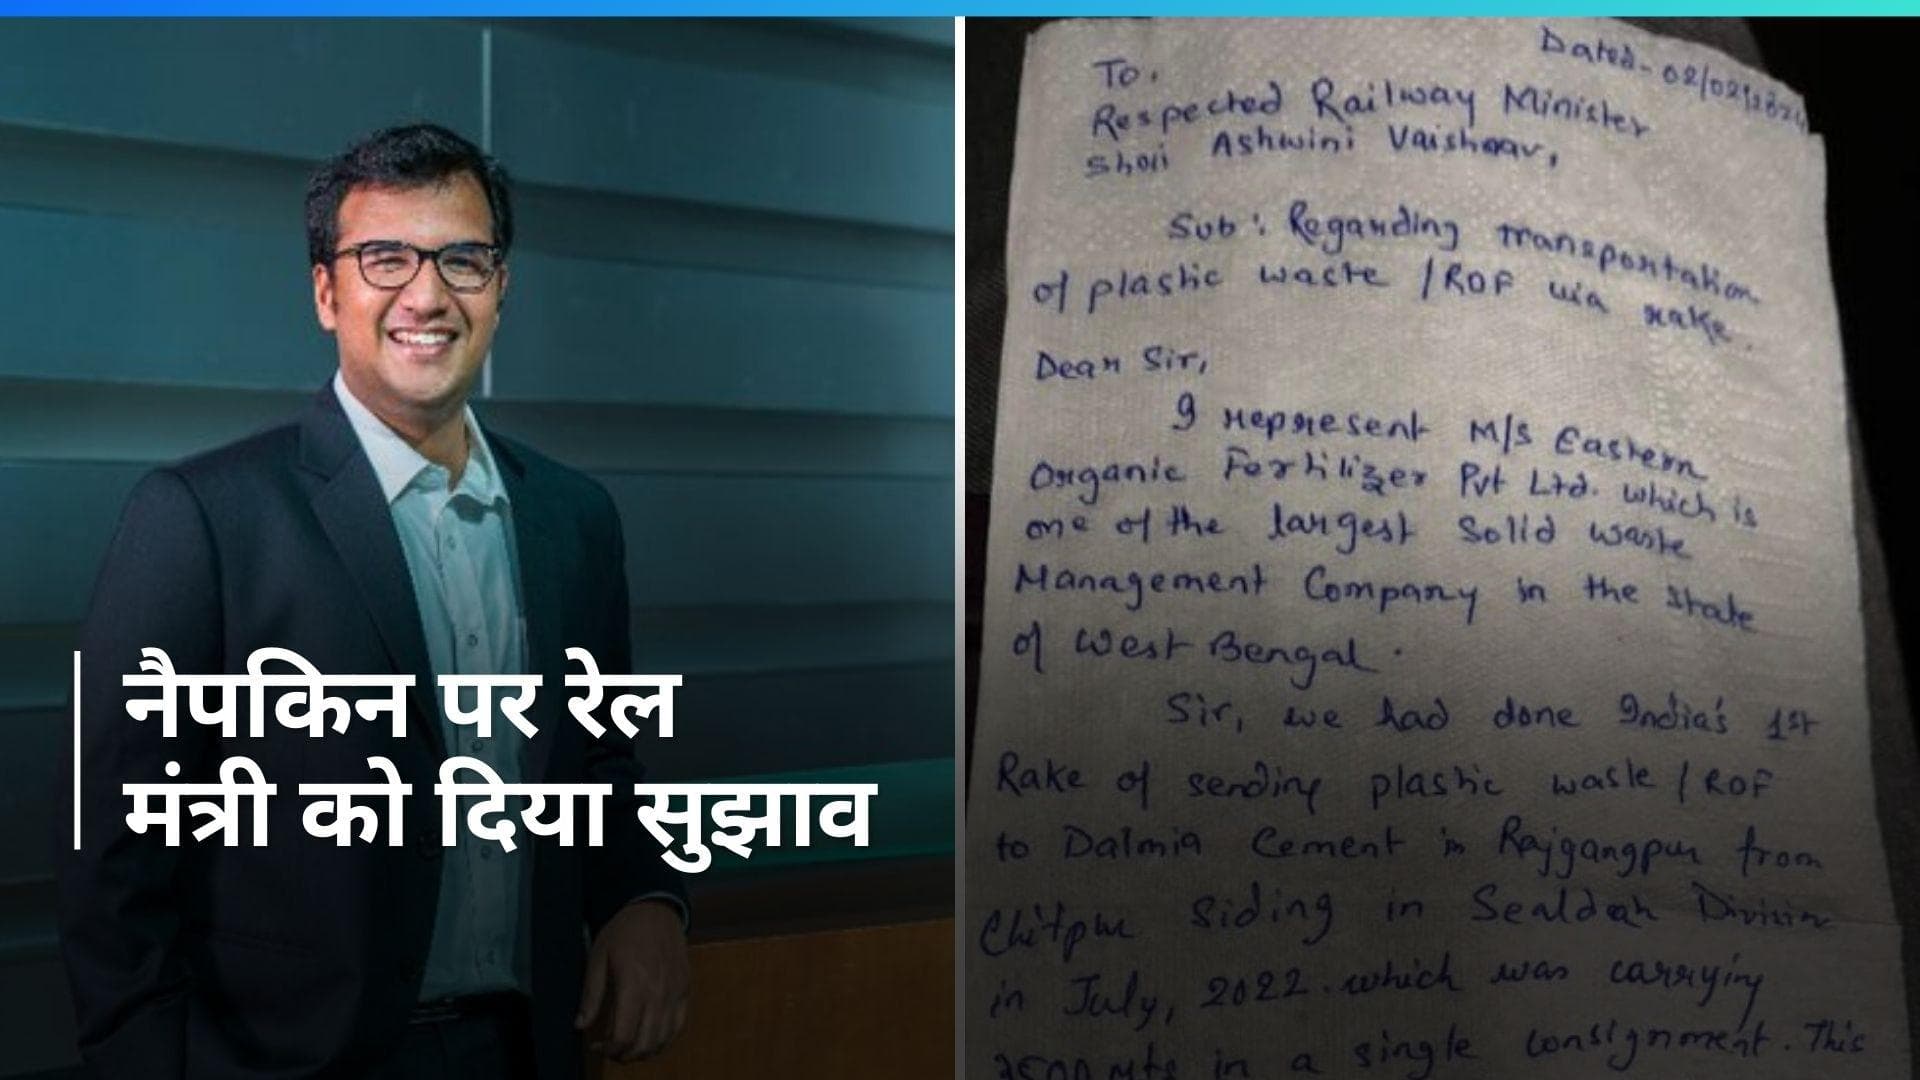 नैपकिन पर रेल
मंत्री को दिया सुझाव
Dated- 02/02/2024
To,
Respected Railway Minister
Shri Ashwini Vaishnav,
Sub: Regarding transportation
of plastic waste /RDF via rake.
Dear Sir,
I represent M/s Eastern
Organic Fertilizer Pvt Ltd. which is
one of the largest Solid waste
Management Company in the state
of West Bengal.
Sir, we had done India's 1st
Rake of sending plastic waste / RDF
to Dalmia Cement in Rajgangpur from
Chitpur Siding in Sealdah Division
in July, 2022. which was carrying
in a single consignment. This